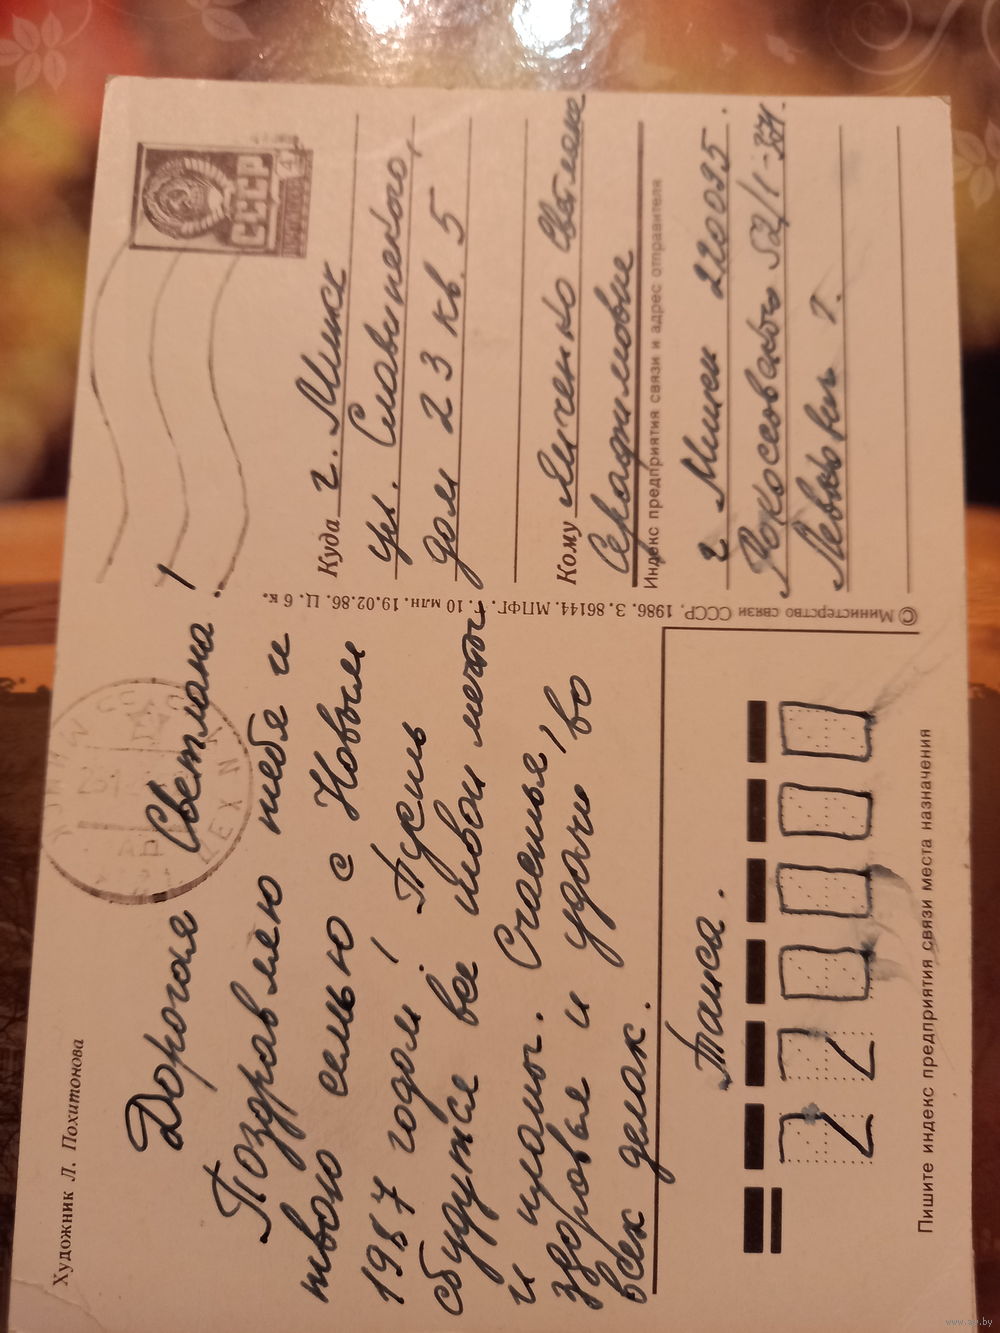 Художник Л. Похитонова
Дорогая Светлана!
Поздравляю тебя и
твою семью с Новым
1987 годом! Пусть
сбудутся все твои мечты
и планы. Счастья,
здоровья и удачи во
всех делах.
Таиса.
220000
Пишите индекс предприятия связи места назначения
© Министерство связи СССР. 1986. З. 86144. МПФГ. Т. 10 млн. 19.02.86. Ц. 6 к.
СССР
Куда г. Минск
ул. Славинского,
дом 23 кв. 5
Кому Янченко Светлане
Серафимовне
Индекс предприятия связи и адрес отправителя
г Минск 220095.
Рокоссовского 52/1-
Левкович Т.
www.ay.by